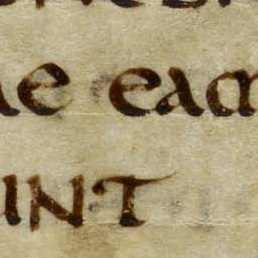 ae eam
INT